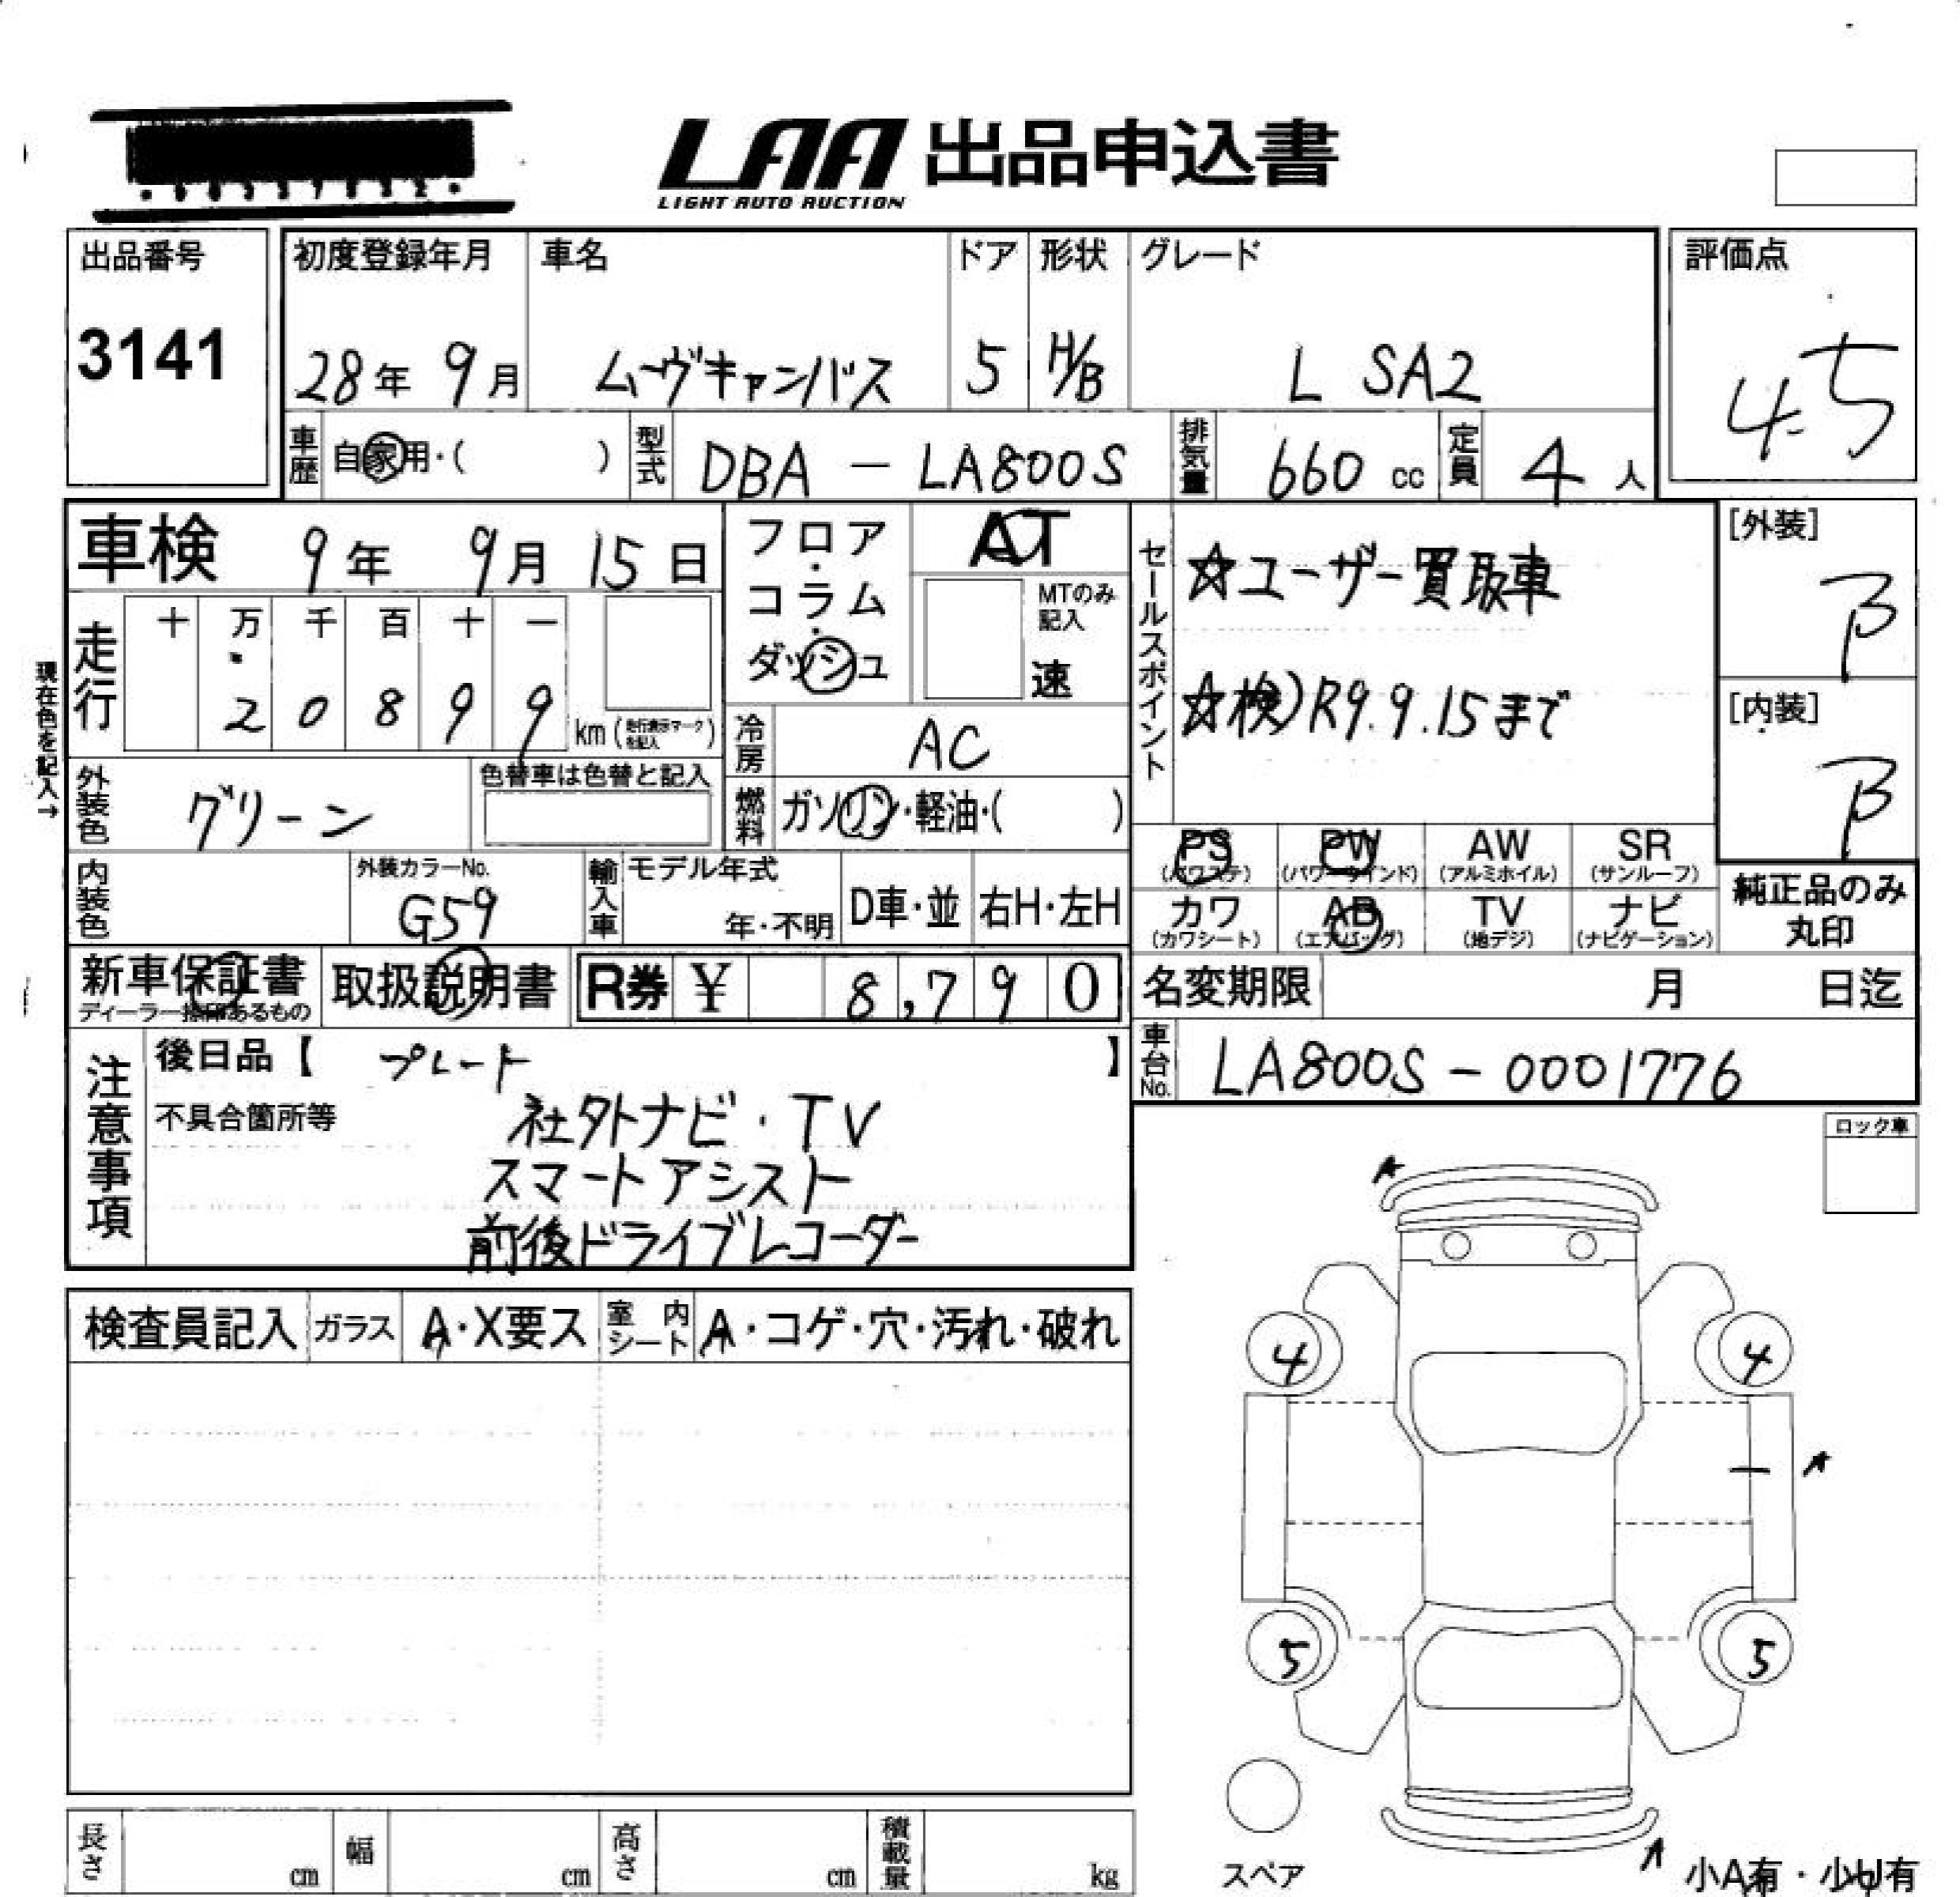 LAA 出品申込書
LIGHT AUTO AUCTION
出品番号
3141
初度登録年月
28年 9月
車名
ムーヴキャンバス
ドア
5
形状
H/B
グレード
L SA2
評価点
4.5
車歴 自家用・( )
型式 DBA - LA800S
排気量 660 cc
定員 4 人
車検 9年 9月 15日
フロア・コラム・ダッシュ
AT
MTのみ記入
速
セールスポイント
☆ユーザー買取車
☆検)R9.9.15まで
[外装]
B
[内装]
B
現在色を記入→
走行
十 万 千 百 十 一
2 0 8 9 9
km (走行表示マークを記入)
冷房 AC
外装色 グリーン
色替車は色替と記入
燃料 ガソリン・軽油・( )
内装色
外装カラーNo.
G59
輸入車
モデル年式
年・不明
D車・並
右H・左H
PS (パワステ)
PW (パワーウインド)
AW (アルミホイル)
SR (サンルーフ)
カワ (カワシート)
AB (エアバッグ)
TV (地デジ)
ナビ (ナビゲーション)
純正品のみ
丸印
新車保証書
ディーラー捺印あるもの
取扱説明書
R券 ¥ 8,790
名変期限 月 日迄
注意事項
後日品【 プレート 】
不具合箇所等
社外ナビ・TV
スマートアシスト
前後ドライブレコーダー
車台No. LA800S - 0001776
ロック車
検査員記入
ガラス A・X要ス
室内シート A・コゲ・穴・汚れ・破れ
A
4 4
A
5 5
スペア
A
小A有・小U有
長さ cm
幅 cm
高さ cm
積載量 kg